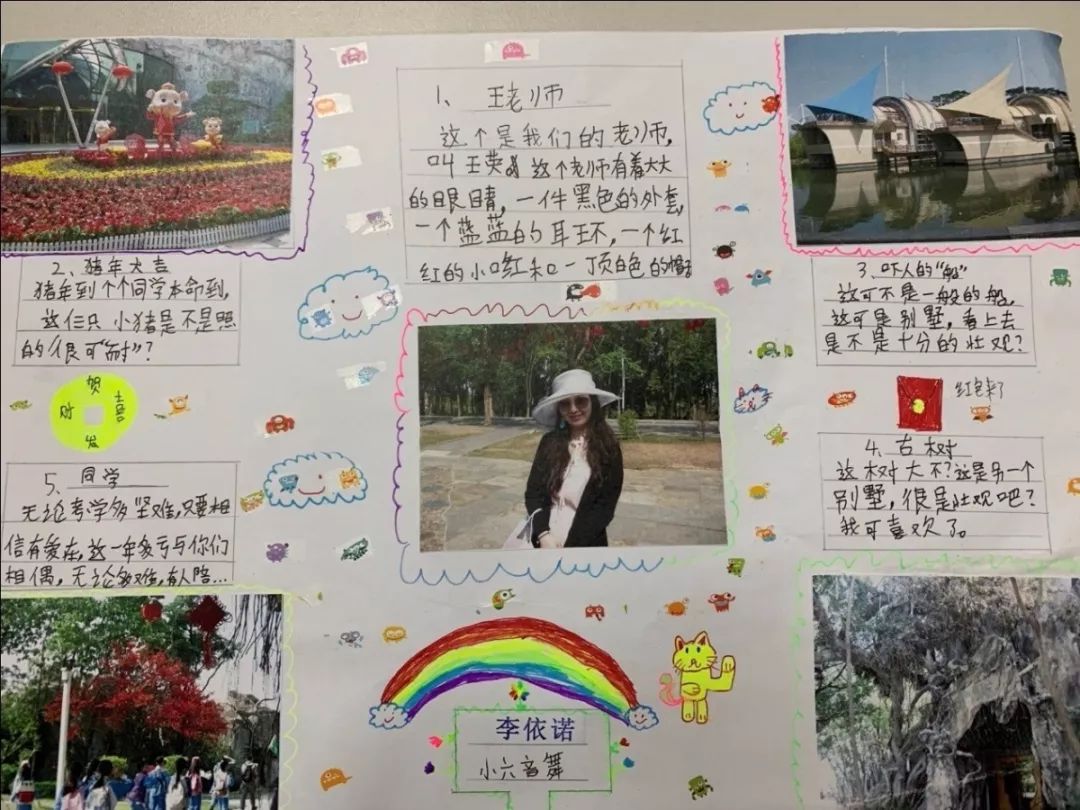 1、王老师
这个是我们的老师,
叫王英 这个老师有着大大
的眼睛,一件黑色的外套,
一个蓝蓝的耳环,一个红
红的小口红和一顶白色的帽子
2、猪年大吉
猪年到个个同学本命到,
这仨只小猪是不是照
的很可“耐”?
贺
财 喜
发
5、同学
无论考学多坚难,只要相
信有爱在,这一年多亏与你们
相偶,无论多难,有人陪…
3、吓人的“船”
这可不是一般的船,
这可是别墅,看上去
是不是十分的壮观?
红包来了
4、古树
这树大不?这是另一个
别墅,很是壮观吧?
我可喜欢了。
李依诺
小六音舞